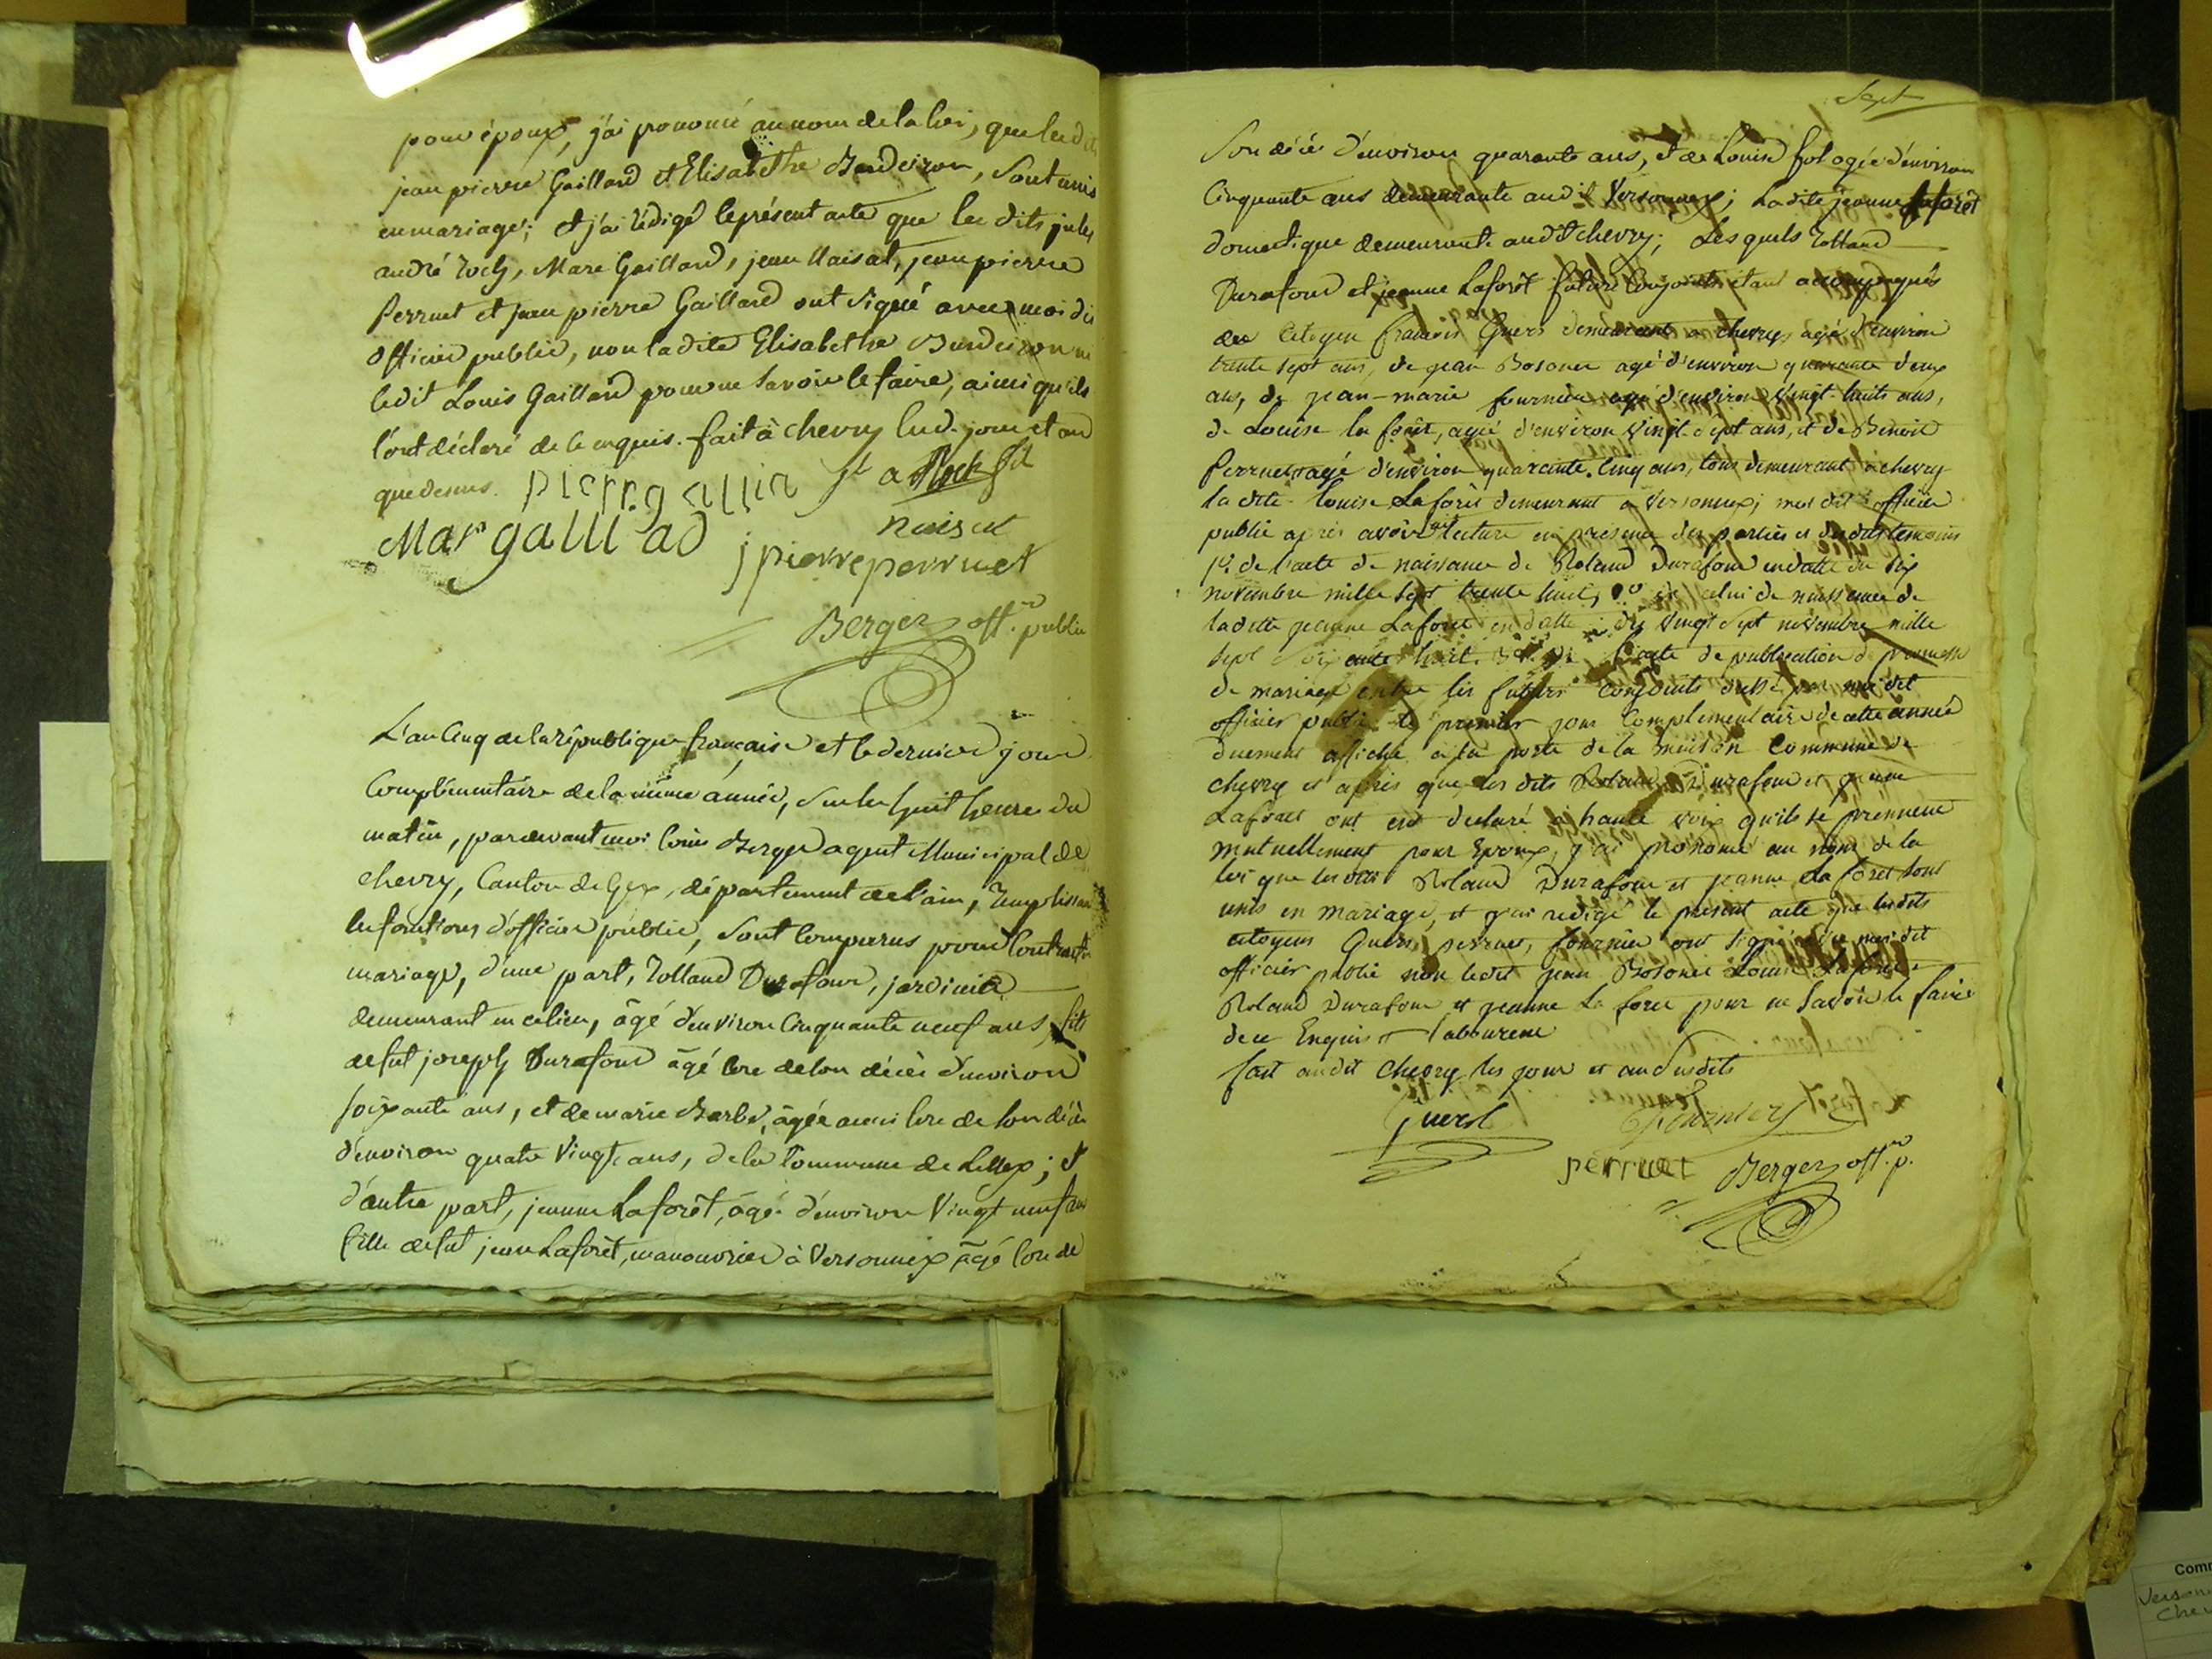 pour époux, j'ai prononcé au nom de la loi, que les dits
jean pierre Gaillard et Elisabethe Bardeiron, sont unis
en mariage; et j'ai rédigé le présent acte que les dits jules
andré roch, Marc Gaillard, jean Naisat, jean pierre
Perruet et jean pierre Gaillard ont signé avec moi dit
officier public, non la dite Elisabethe Bardeiron ni
ledit Louis Gaillard pour ne savoir le faire, ainsi qu'ils
l'ont déclaré de le enquis. fait à chevry lesd. jour et an
que dessus.
Roch
naisat
jpierreperruet
Berger off.er public
L'an Cinq de la république française et le dernier jour
Complémentaire de la même année, sur les huit heures du
matin, pardevant moi louis Berger agent Municipal de
chevry, Canton de Gex, département de l'ain, Remplissant
les fonctions d'officier public, sont comparus pour Contracter
mariage, d'une part, Rolland Durafour, jardinier
demeurant en ce lieu, âgé d'environ Cinquante neuf ans, fils
de fut joseph Durafour âgé lors de son décès d'environ
soixante ans, et de marie Barbe, âgée aussi lors de son décès
d'environ quatre Vingt ans, de la Commune de Lellex; et
d'autre part, jeanne Laforêt, âgé d'environ Vingt neuf ans
fille de fut jean Laforêt, manouvrier à Versonnex âgé lors de
Sept
Son décès d'environ quarante ans, et de Louise fol agée d'environ
Cinquante ans demeurante audit Versonnex; La dite jeanne laforêt
domestique demeurante aud.t chevry; Lesquels Rolland
Durafour et jeanne Laforêt futurs Conjoints étant accompagnés
des Citoyen françois Guers demeurant a chevry agé d'environ
trente sept ans, de jean Bosonet agé d'environ quarante deux
ans, de jean-marie fournier agé d'environ vingt-huits ans,
de Louise la forêt, agé d'environ vingt-sept ans, et de Benoit
Perruet agé d'environ quarante-cinq ans, tous demeurant a chevry
la dite louise Laforêt demeurant a Versonnex; moi dit officier
public après avoir fait lecture en presence des parties et des dits temoins
1°. de l'acte de naissance de Roland Durafour en datte du six
novembre mille sept trente huit, 2° de celui de naissance de
ladite jeanne Laforet en datte du vingt sept novembre mille
sept soixante huit. 3° de l'acte de publication de promesse
de mariage entre les futurs conjoints dressé par moi dit
officier public le premier jour Complementaire de cette année
duement affiché a la porte de la maison Commune de
chevry et après que les dits Roland Durafour et jeanne
Laforet ont eut declaré a haute voix qu'ils se prennent
mutuellement pour Epoux, j'ai prononcé au nom de la
loi que les dits Roland Durafour et jeanne La foret sont
unis en mariage, et j'ai redigé le présent acte que lesdits
citoyens Guers, perruet, fournier ont signé avec moi dit
officier public non ledit jean Bosonet Louise Laforet
Roland Durafour et jeanne La foret pour ne savoir le faire
de ce Enquis
fait audit Chevry les jour et an susdits
Guers
Fournier
perruet
Berger off.er p.